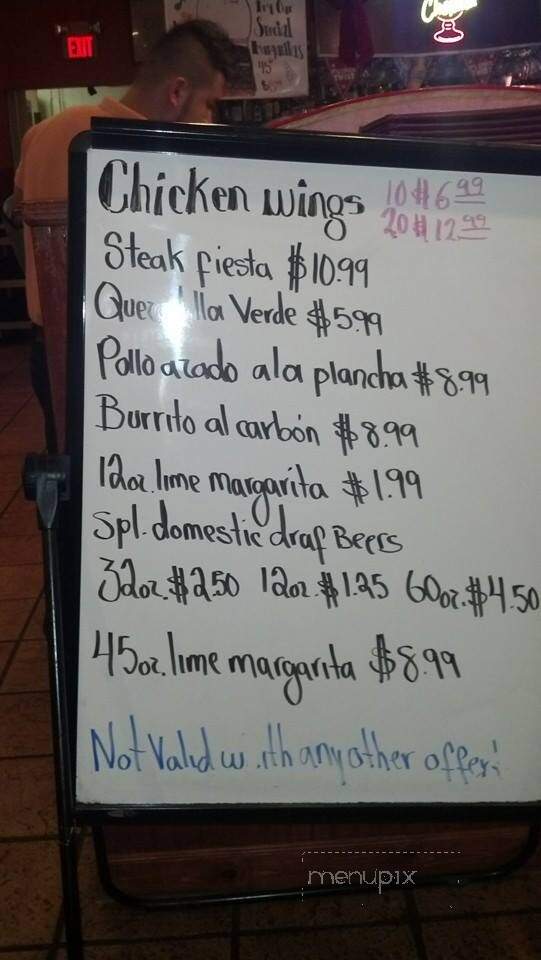 EXIT
Try Our
Special
Margaritas
Chicken wings 10 $6 99
20 $12 99
Steak fiesta $10.99
Verde $5.99
Pollo azado ala plancha $8.99
Burrito al carbón $8.99
12oz. lime margarita $1.99
Spl. domestic draf Beers
32oz. $2.50 12oz. $1.25 60oz. $4.50
45oz. lime margarita $8.99
Not Valid with any other offer!
menupix